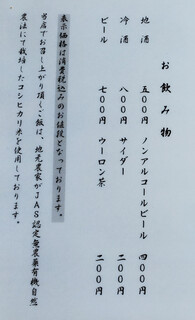 お飲み物
地酒 五〇〇円 ノンアルコールビール 四〇〇円
冷酒 八〇〇円 サイダー 二〇〇円
ビール 七〇〇円 ウーロン茶 二〇〇円
表示価格は消費税込みのお値段となっております。
当店でお召し上がり頂くご飯は、地元農家がJAS認定無農薬有機自然
農法にて栽培したコシヒカリ米を使用しております。